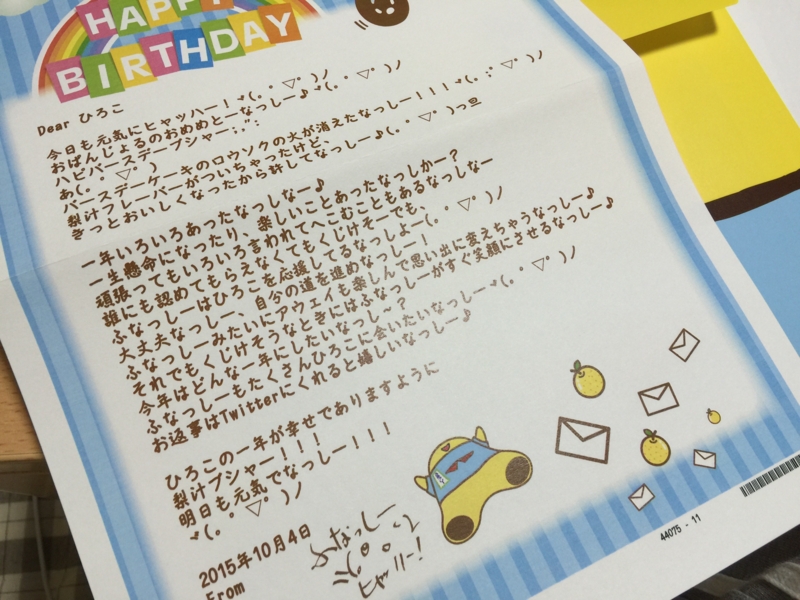 HAPPY
BIRTHDAY
Dear ひろこ
今日も元気にヒャッハー！ヾ(。゜▽゜)ノ
おばんじょるのおめめとーなっしー♪ヾ(。゜▽゜)ノ
ハピバースデーブシャー;.";
あ(。゜▽゜)
バースデーケーキのロウソクの火が消えたなっしー！！！ヾ(。;゜▽゜)ノ
梨汁フレーバーがついちゃったけど、
きっとおいしくなったから許してなっしー♪(。゜▽゜)っ旦
一年いろいろあったなっしなー♪
一生懸命になったり、楽しいことあったなっしかー？
頑張ってもいろいろ言われてへこむこともあるなっしなー
誰にも認めてもらえなくてもくじけそーでも、
ふなっしーはひろこを応援してるなっしよー(。゜▽゜)ノ
大丈夫なっしー、自分の道を進めなっしー！
ふなっしーみたいにアウェイも楽しんで思い出に変えちゃうなっしー♪
それでもくじけそうなときにはふなっしーがすぐ笑顔にさせるなっしー♪
今年はどんな一年にしたいなっし～？
ふなっしーもたくさんひろこに会いたいなっしーヾ(。゜▽゜)ノ
お返事はTwitterにくれると嬉しいなっしー♪
ひろこの一年が幸せでありますように
梨汁ブシャー！！！
明日も元気でなっしー！！！
ヾ(。゜▽゜)ノ
2015年10月4日
From
ふなっしー
ヒャッハー!
44075 - 11